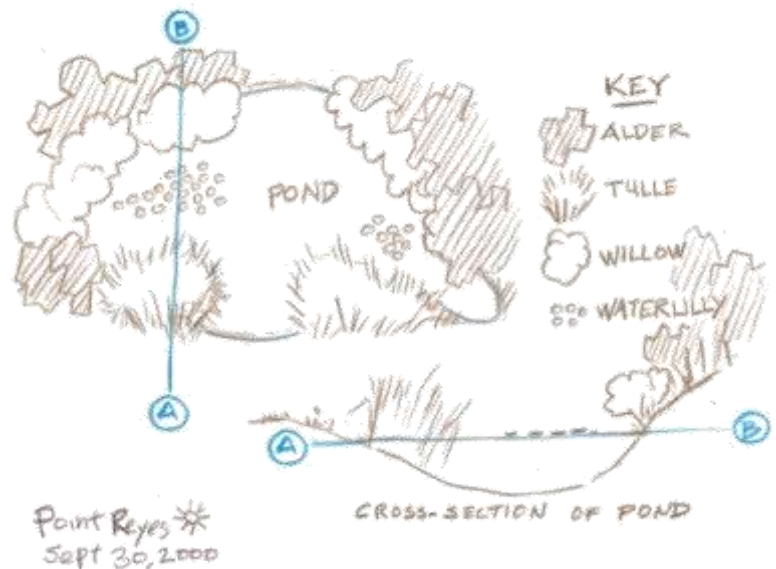 B
KEY
ALDER
TULLE
POND
WILLOW
WATERLILLY
A
A
B
CROSS-SECTION OF POND
Point Reyes
Sept 30, 2000